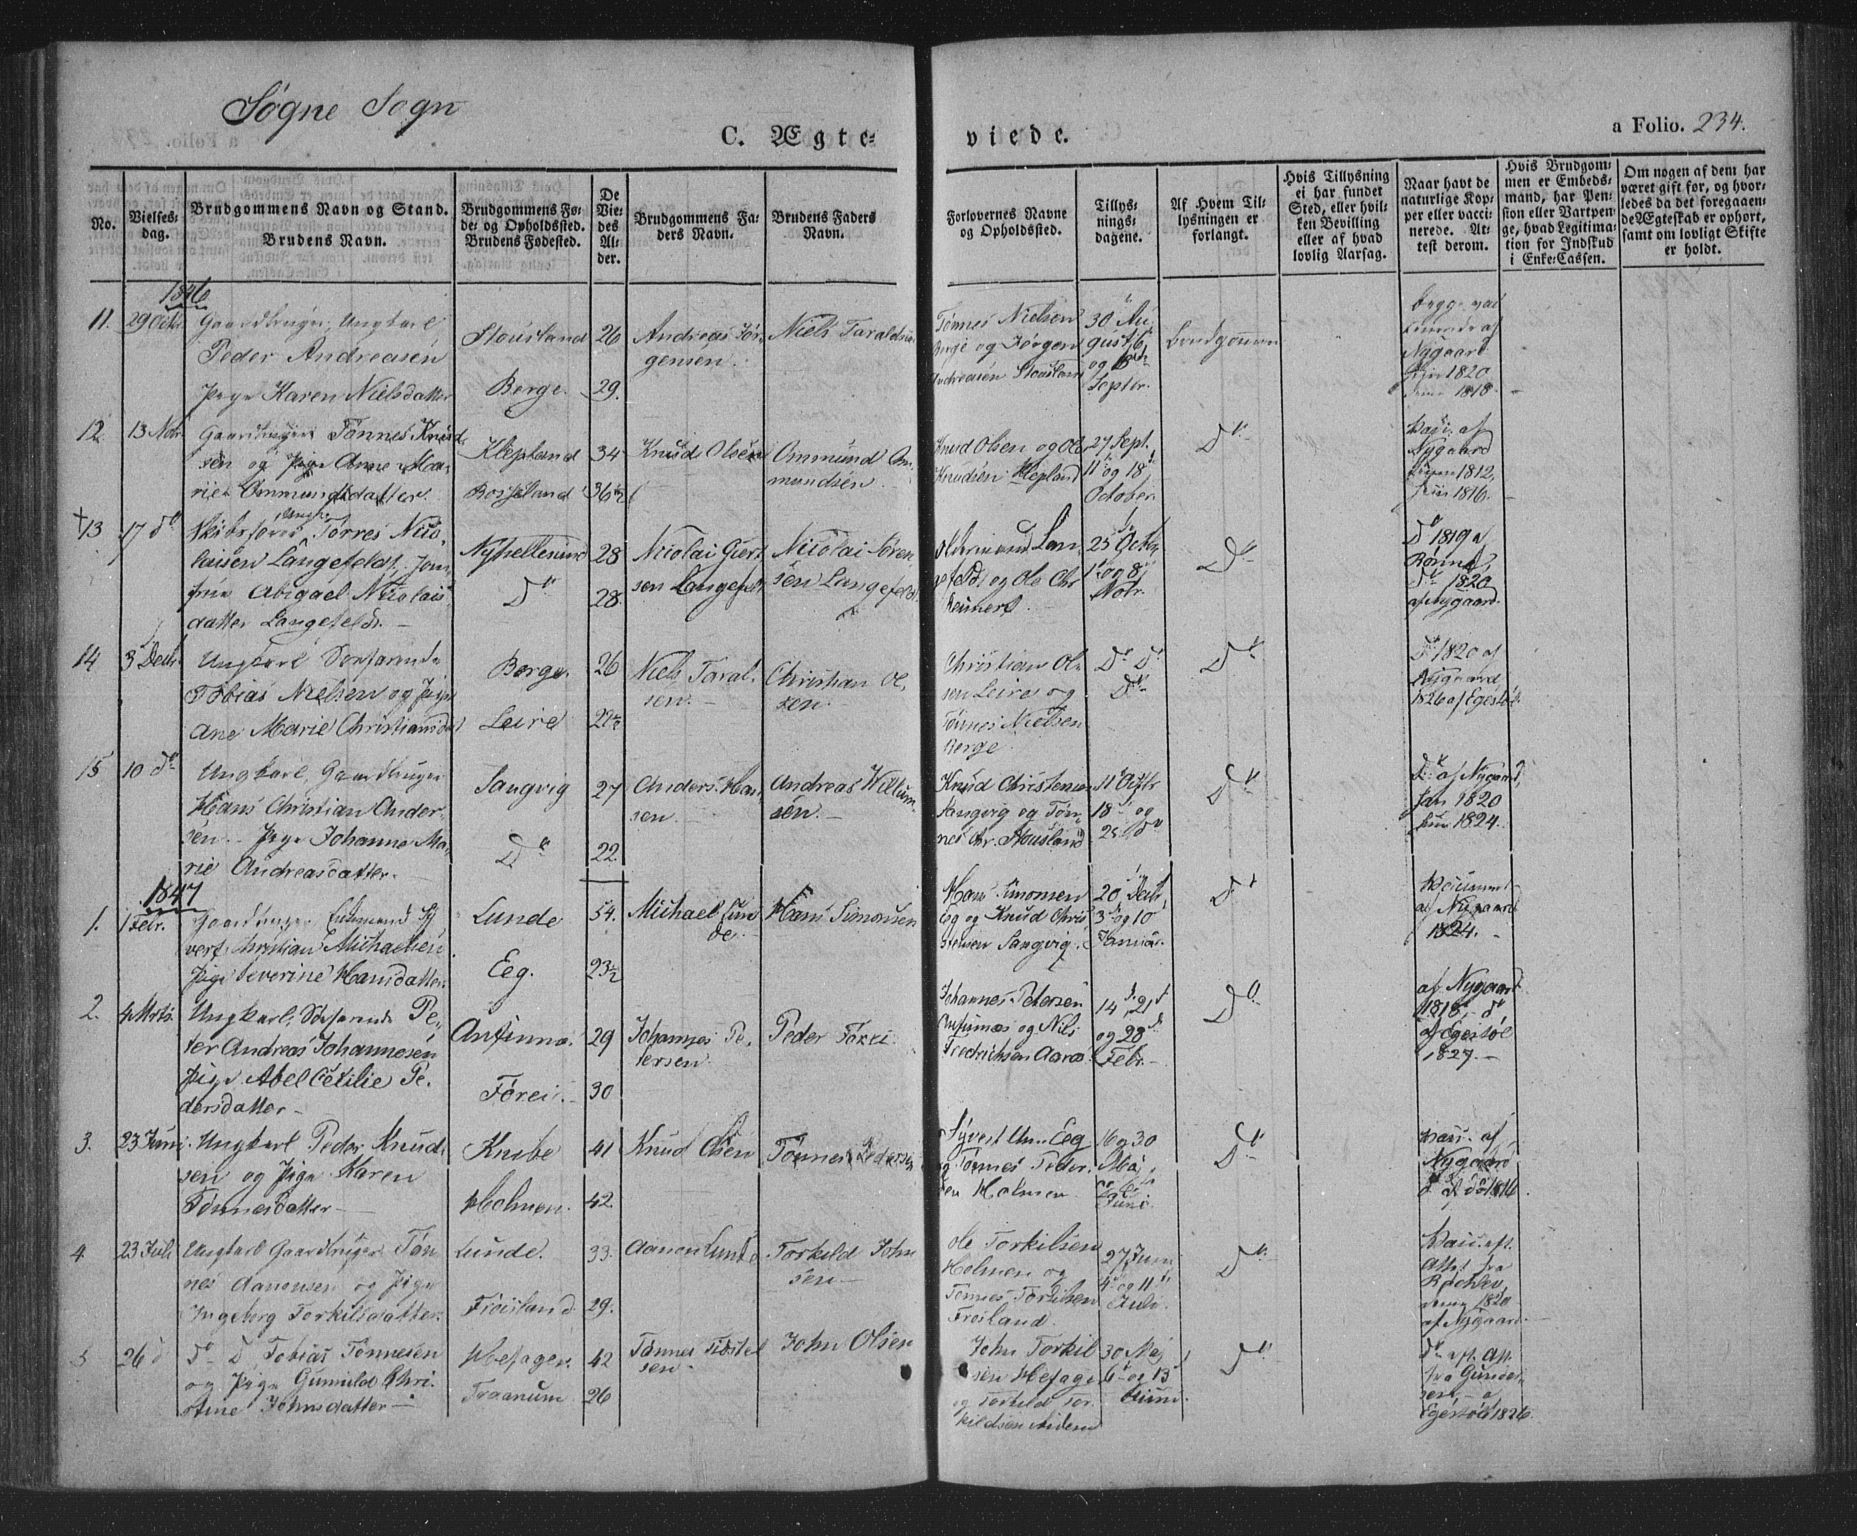 Søgne Sogn
C. Ægte= viede.
a Folio. 234.
No.
Vielses=
dag.
Brudgommens Navn og Stand.
Brudens Navn.
Brudgommens Fø=
de= og Opholdssted.
Brudens Fødested.
De
Vie=
des
Al=
der.
Brudgommens Fa=
ders Navn.
Brudens Faders
Navn.
Forlovernes Navne
og Opholdssted.
Tillys=
nings=
dagene.
Af Hvem Til=
lysningen er
forlangt.
Hvis Tillysning
ei har fundet
Sted, eller hvil=
ken Bevilling
eller af hvad
lovlig Aarsag.
Naar havt de
naturlige Kop=
per eller vacci=
nerede. At=
test derom.
Hvis Brudgom=
men er Embeds=
mand, har Pen=
sion eller Vartpen=
ge, hvad Legitima=
tion for Indskud
i Enke=Cassen.
Om nogen af dem har
været gift før, og hvor=
ledes da det foregaaen=
de Ægteskab er ophørt,
samt om lovligt Skifte
er holdt.
1846
11. 29 Octbr.
Gaardbruger, Ungkarl
Peder Andreasen
Pige Karen Nielsdatter
Stousland
Berge.
26
29.
Andreas Jør=
gensen.
Niels Taraldsen
Tønnes Nielsen
Berge og Jørgen
Andreasen Stousland
30 Au=
gust, 6
og 13de
Septer.
Brudgommen
begge vac=
af
Nygaard
1820
1818.
12. 13 Nobr.
Gaardbruger Tønnes Knud=
sen og Pige Anne Ma=
rie Ommundsdatter
Klepland
Bosseland
34
36½
Knud Olsen
Ommund Om=
mundsen.
Knud Olsen og Ole
Knudsen Klepland
27 Sept.
11 og 18
October
Do
Vacc. af
Nygaard
1812,
1816.
†13 17 do
Tørres Nico=
laisen Langefeldt, Jom=
frue Abigael Nicolais=
datter Langefeldt.
Ny Hellesund
Do
28
28.
Nicolai Giert=
sen Langefeldt
Nicolai Søren=
sen Langefeldt
Lan=
gefeldt og Ole Chr
Reinert.
25 Octbr
1 og 8
Nobr.
Do
Do 1819 a
Do 1820
af Nygaard.
14 3 Decbr
Ungkarl Søefarende
Tobias Nielsen og Pige
Ane Marie Christiansdat
Berge.
Leire
26
22½
Niels Taral=
sen.
Christian Ol=
sen.
Christian Ol=
sen Leire og
Tønnes Nielsen
Berge.
Do Do
Do
Do
Do 1820 af
Nygaard
1826 af Egestøl.
15 10 do
Ungkarl, Gaardbruger
Hans Christian Ander=
sen. Pige Johanne Ma=
rie Andreasdatter.
Sangvig
Do
27
22.
Anders Han=
sen.
Andreas Willum=
sen.
Knud Christensen
Sangvig og Tøn=
nes Chr. Stousland
11 Octbr
18 og
25 do
Do
Do af Nygaard,
Jan 1820
1824.
1847
1. 1 Febr.
Gaardbruger Enkemand Sy=
vert Christian Michaelsen
Pige Severine Hansdatter
Lunde
Eeg.
54.
23½
Michael Lun=
de.
Hans Simonsen
Hans Simonsen
Eeg og Knud Chris=
tensen Sangvig.
20 Decbr,
3 og 10
Januar.
Do
af Nygaard
1824.
2. 4 Marts.
Ungkarl, Søefarende Pe=
ter Andreas Johannesen
Pige Abel Cecilie Pe=
dersdatter
Amfinnæs
Førei.
29
30
Johannes Pe=
tersen.
Peder Førei.
Johannes Petersen
Amfinnæs og Nils
Fredrichsen Aaros
14, 21
og 28
Febr.
Do
af Nygaard
1818, do
af Egestøl
1827.
3. 23 Juni.
Ungkarl Peder Knud=
sen og Pige Karen
Tønnesdatter
Knibe
Holmen.
41
42.
Knud Olsen
Tønnes Pedersen
Syvert Eeg
og Tønnes Peder=
sen Holmen
16 og 30
Maj,
Juni
Do
Vacc. af
Nygaard
af do 1816
4 23 Juli
Ungkarl Gaardbruger Tøn=
nes Aanensen og Pige
Ingeborg Torkildsdatter
Lunde.
Frøisland.
33.
29.
Aanon Lunde
Torkild John=
sen
Ole Torkilsen
Holmen og
Tønnes Torkilsen
Frøisland.
27 Juni
4 og 11
Juli.
Do
Vacc. eft.
Attest fra
1820
af Nygaard.
5 26 d
Do D Tobias Tønnesen
og Pige Gunnild Chri=
stine Johnsdatter
Hefagen
Traanum
42
26
Tønnes Tostel
sen
John Olsen
John Torkil=
sen Hefage
og Torkild Tor=
kildsen
30 Maj
6 og 13
Juni.
Do
do eft. Att
fra Gunder=
sen, a
Egestøl 1826.